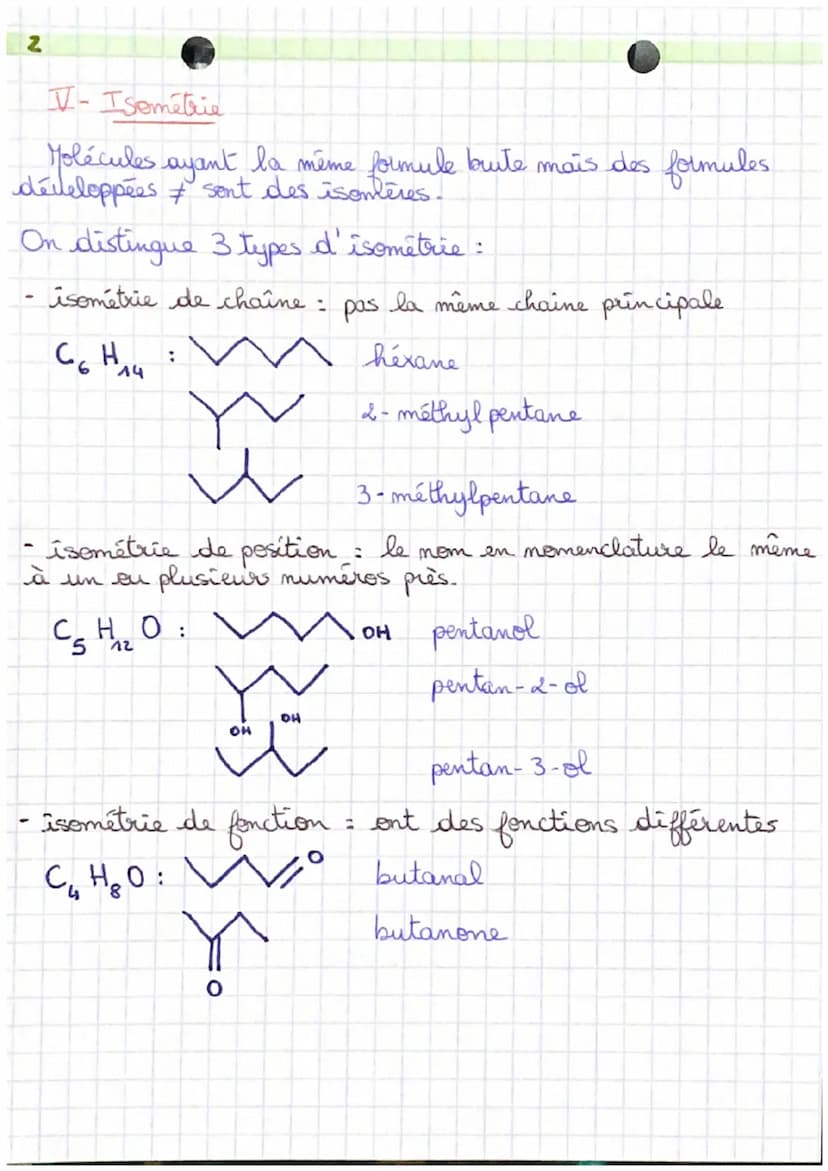 2
V - Isométrie
Molécules ayant la même formule brute mais des formules
développées ≠ sont des isomères.
On distingue 3 types d'isométrie :
- isométrie de chaîne : pas la même chaine principale
C₆ H₁₄ : héxane
2 - méthylpentane
3 - méthylpentane
- isométrie de position : le nom en nomenclature le même
à un ou plusieurs numéros près.
C₅ H₁₂ O : OH pentanol
pentan - 2 - ol
OH OH
pentan - 3 - ol
- isométrie de fonction : ont des fonctions différentes
C₄ H₈ O : O butanal
butanone
O